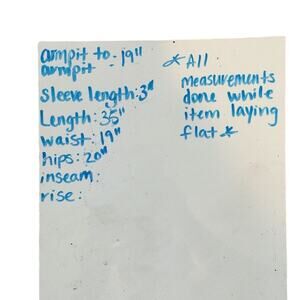 armpit to - 19"
armpit
Sleeve length: 3"
Length: 35"
waist: 19"
hips: 20"
inseam:
rise:
*All
measurements
done while
item laying
flat*